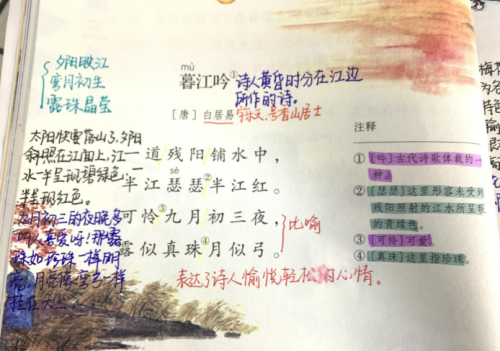 mù
暮江吟①
诗人黄昏时分在江边
所作的诗。
[唐] 白居易
字乐天,号香山居士
夕阳映江
弯月初生
露珠晶莹
一道残阳铺水中,
sè
半江瑟瑟②半江红。
可怜③九月初三夜,
露似真珠④月似弓。
比喻
表达了诗人愉悦轻松的内心情。
太阳快要落山了,夕阳
斜照在江面上,江
水一半呈现碧绿色,一
半呈现红色。
九月初三的夜晚多
么人喜爱呀!那露
珠如珍珠一样明
亮,月亮像弯弓一样
挂在天上。
注释
①[吟]古代诗歌体裁的一
种。
②[瑟瑟]这里形容未受到
残阳照射的江水所呈现
的青绿色。
③[可怜]可爱。
④[真珠]这里指珍珠。